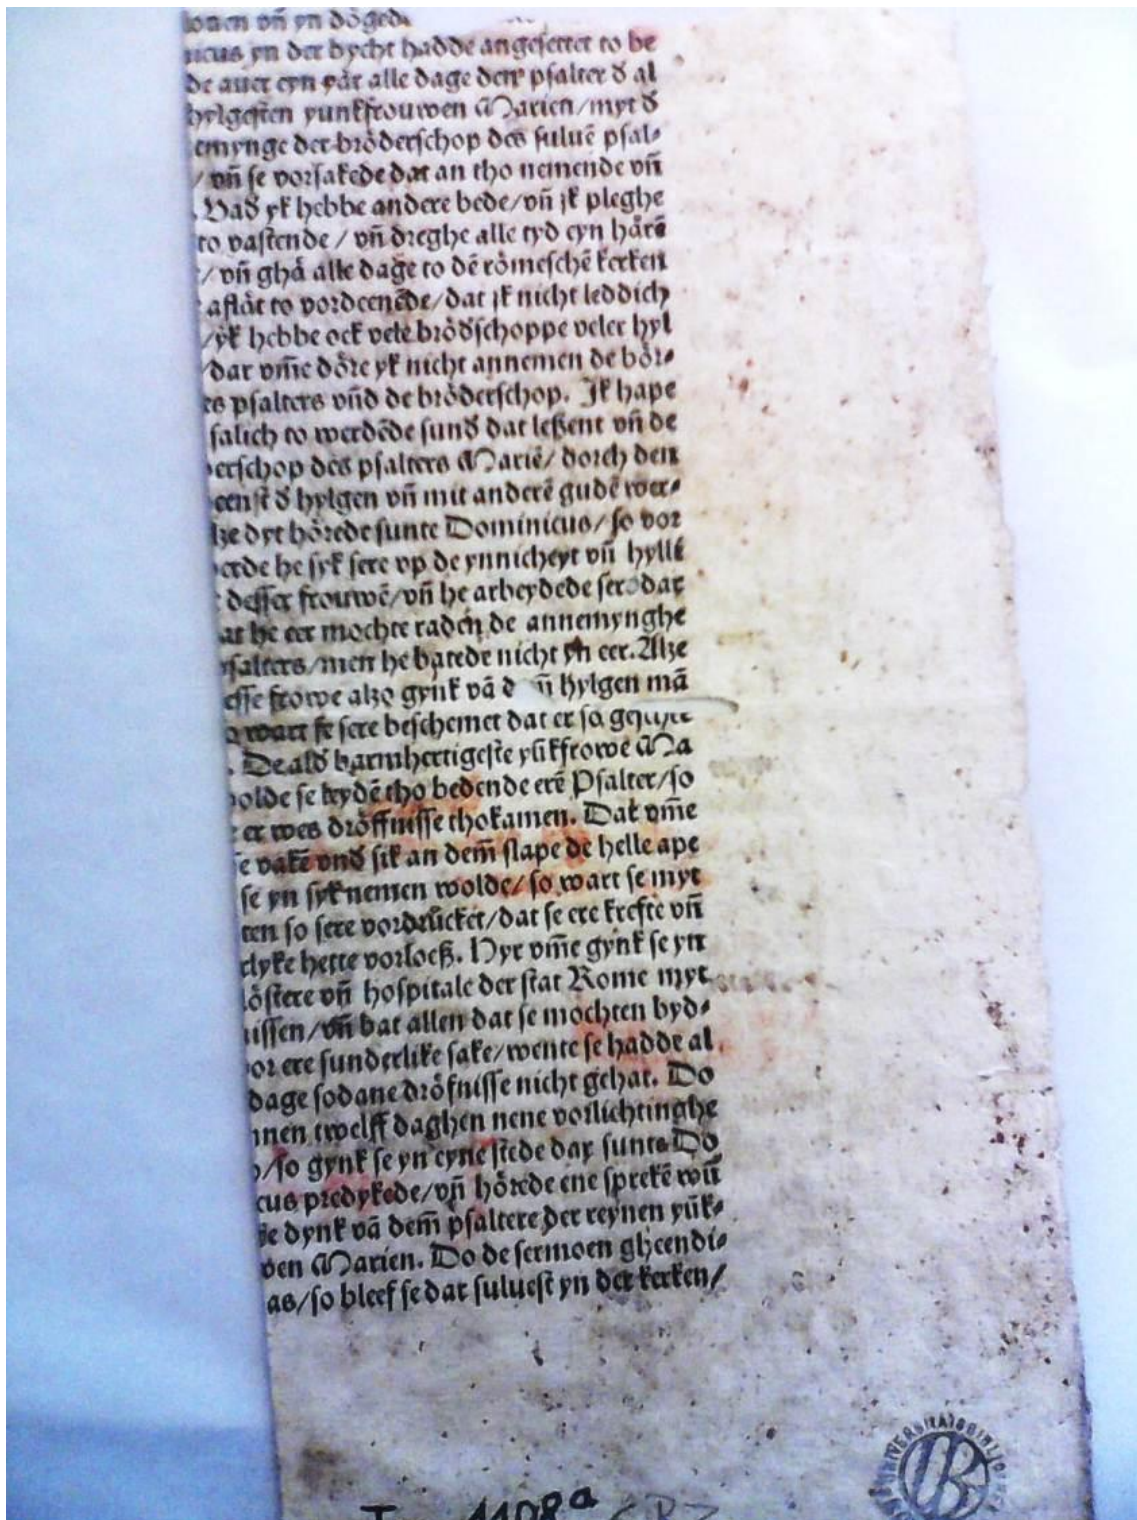 vn̄ yn dőged
icus yn der bycht hadde angesettet to be
de auer eyn yǎr alle dage den psalter ꝺ al
hylgesten yunkfrouwen Marien/myt ꝺ
emynge der brőderschop des suluē psal⸗
/ vn̄ se vorsakede dat an tho nemende vn̄
. Vaꝺ yk hebbe andere bede/vn̄ jk pleghe
to vastende / vn̄ dreghe alle tyd eyn hǎrē
/ vn̄ ghǎ alle dage to dē rőmeschē kerken
aflǎt to vordeenēde/dat jk nicht leddich
/yk hebbe ock vele brőꝺschoppe veler hyl
/dar vm̄e dőre yk nicht annemen de bőr⸗
es psalters vn̄d de brőderschop. Jk hape
salich to werdēde sunꝺ dat leßent vn̄ de
erschop des psalters Mariē/ dorch den
eenst ꝺ hylgen vn̄ mit anderē gudē wer⸗
lze dyt hőrede sunte Dominicus/ so vor
erde he syk sere vp de ynnicheyt vn̄ hylli
desser frouwē/vn̄ he arbeydede sere dar
at he eer mochte raden de annemynghe
psalters/men he batede nicht yn eer. Alze
esse frowe alzo gynk vā d n̄ hylgen mā
o wart se sere beschemet dat er so
. De alꝺ barmhertigeste yūkfrowe Ma
olde se leydē tho bedende erē Psalter/so
er wes drőffnisse thokamen. Dat vm̄e
e vakē vnꝺ sik an dem̄ slape de helle ape
se yn syk nemen wolde/ so wart se myt
ten so sere vordrücket/dat se ere krefte vn̄
lyke hette vorloeß. Hyr vm̄e gynk se yn
lőstere vn̄ hospitale der stat Rome myt
nissen/vn̄ bat allen dat se mochten byd⸗
or ere sunderlike sake/wente se hadde al
dage sodane drőfnisse nicht gehat. Do
nnen twelff daghen nene vorlichtinghe
/so gynk se yn eyne stede dar sunte Do
cus predykede/vn̄ hőrede ene sprekē wū
e dynk vā dem̄ psaltere der reynen yūk⸗
wen Marien. Do de sermoen gheendi⸗
as/so bleef se dar suluest yn der kerken/
UNIVERSITÄTSBIBLIOTHEK
UB
1108a